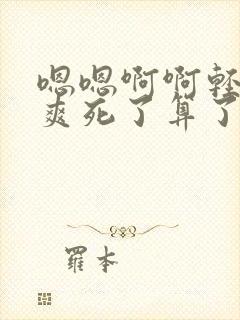 嗯嗯啊啊轻
爽死了算了
羅本